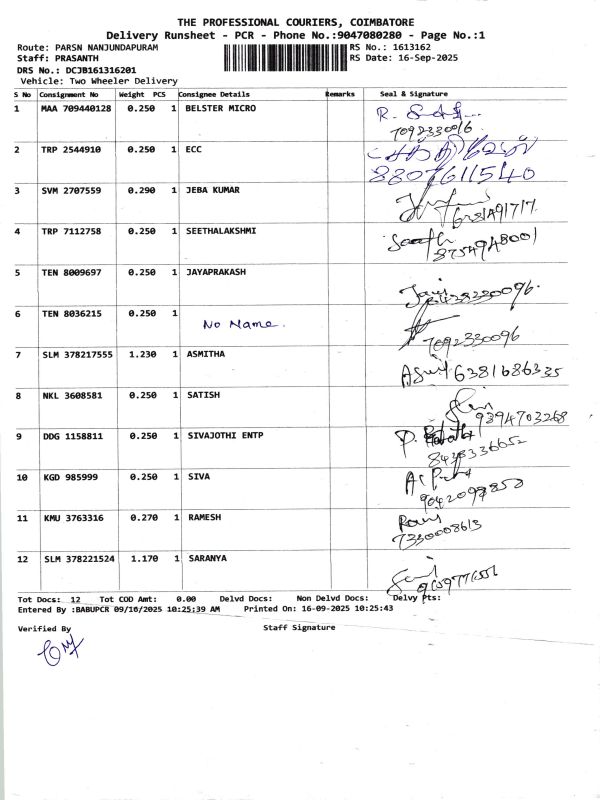 THE PROFESSIONAL COURIERS, COIMBATORE
Delivery Runsheet - PCR - Phone No.:9047080280 - Page No.:1
Route: PARSN NANJUNDAPURAM RS No.: 1613162
Staff: PRASANTH RS Date: 16-Sep-2025
DRS No.: DCJB161316201
Vehicle: Two Wheeler Delivery
S No Consignment No Weight PCS Consignee Details Remarks Seal & Signature
1 MAA 709440128 0.250 1 BELSTER MICRO
7092330016
2 TRP 2544910 0.250 1 ECC
8807611540
3 SVM 2707559 0.290 1 JEBA KUMAR
4 TRP 7112758 0.250 1 SEETHALAKSHMI
8754948001
5 TEN 8009697 0.250 1 JAYAPRAKASH
6 TEN 8036215 0.250 1 No Name.
7092330096
7 SLM 378217555 1.230 1 ASMITHA
6381686335
8 NKL 3608581 0.250 1 SATISH
9394703268
9 DDG 1158811 0.250 1 SIVAJOTHI ENTP
10 KGD 985999 0.250 1 SIVA
11 KMU 3763316 0.270 1 RAMESH
7330008613
12 SLM 378221524 1.170 1 SARANYA
Tot Docs: 12 Tot COD Amt: 0.00 Delvd Docs: Non Delvd Docs: Delvy Pts:
Entered By :BABUPCR 09/16/2025 10:25:39 AM Printed On: 16-09-2025 10:25:43
Verified By Staff Signature